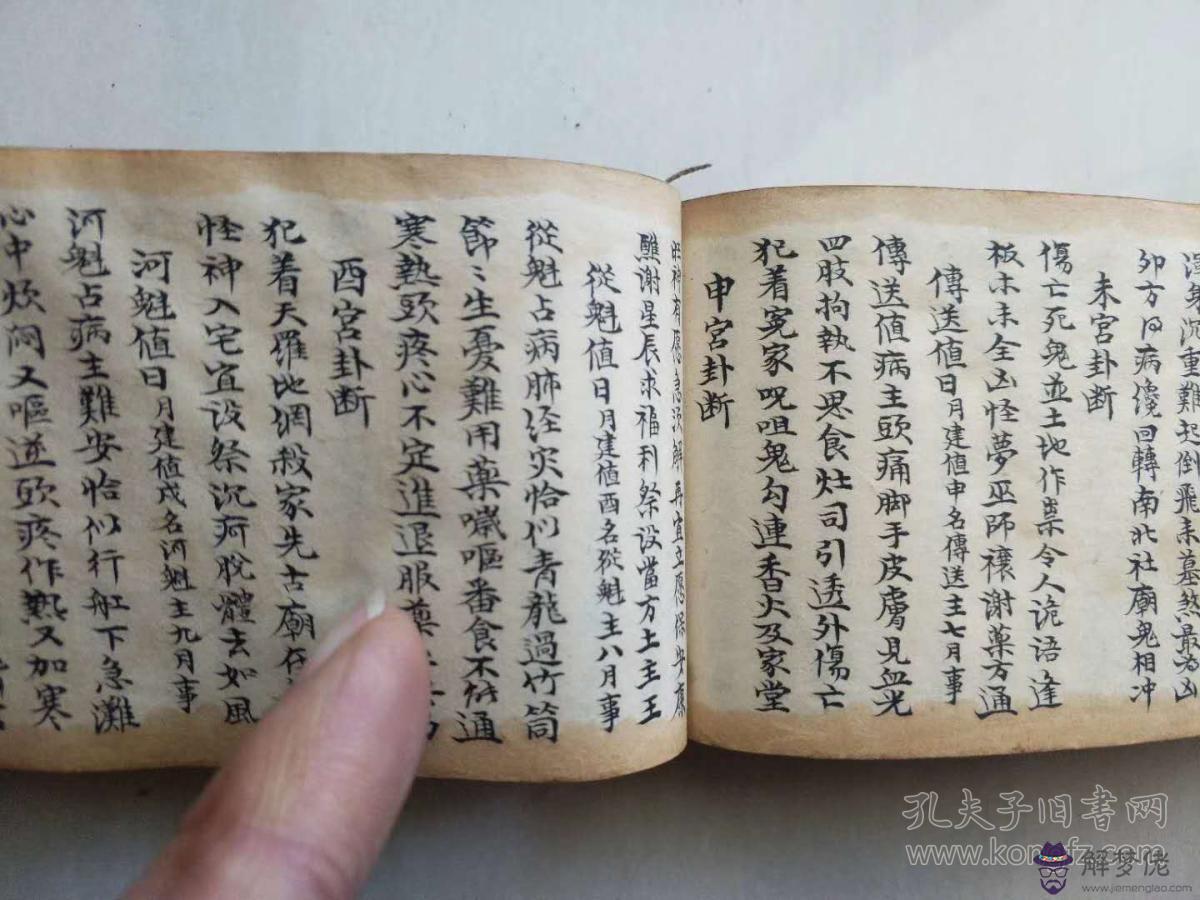 沉重難起倒飛來墓煞最為凶
卯方日病儳回轉南北社廟鬼相冲
未宮卦断
傷亡死鬼並土地作祟令人詭语逢
板未未全凶怪夢巫師禳謝薬方通
傳送值日月建值申名傳送主七月事
傳送值病主頭痛脚手皮膚見血光
四肢拘執不思食灶司引透外傷亡
犯着冤家呪咀鬼勾連香火及家堂
申宮卦断
旺神有應急次解再宜立應保安康
醮謝星辰求福利祭设當方土主王
從魁值日月建值酉名從魁主八月事
從魁占病肺经灾恰似青龍過竹筒
節〻生憂難用薬噦嘔番食不能通
寒熱頭疼心不定進退服薬
酉宮卦断
犯着天羅地網殺家先古廟在
怪神入宅宜设祭沉疴脫體去如風
河魁值日月建值戌名河魁主九月事
河魁占病主難安恰似行舡下急灘
心中炊悶又嘔逆頭疼作熱又加寒
孔夫子旧书网
www.kongfz.com
解梦佬
www.jiemenglao.com